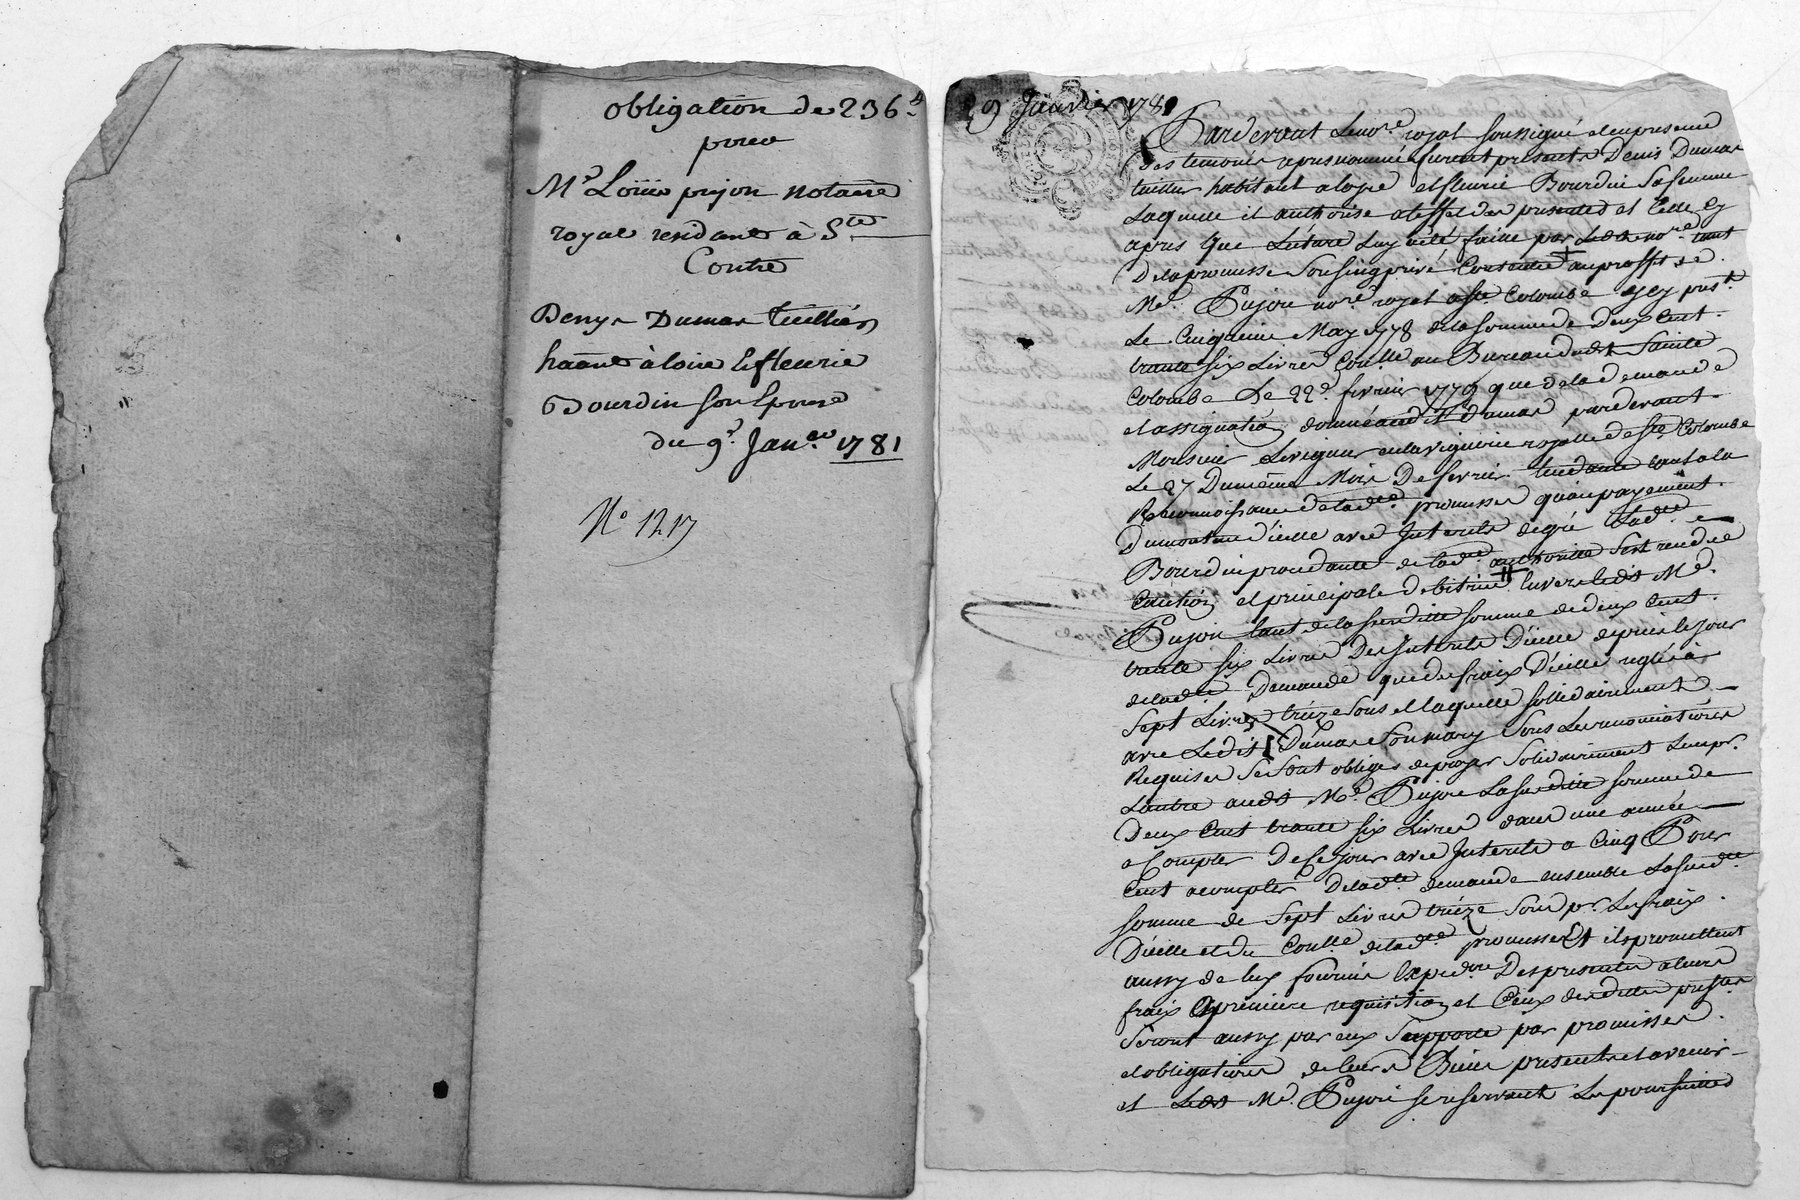 obligation de 236 lt
pour
Me Louis pujon notaire
royal residant à Ste
Contre
Denys Dumas tuillier
haānt à loire & fleurie
Bourdin son Epouse
du 9e Janer 1781
No 1217
9 Janvier 1781
Pardevant le nore royal soussigné et en presence
des temoins apres nommés furent presents Denis Dumas
tuillier habitant a loire et fleurie Bourdin sa femme
Laquelle il authorise a l'effet des presentes et Celle cy
apres que Lecture Luy a été faitte par Ledt nore tant
De la promesse sousing privé Contenue au proffit de
Me Pujon nore royal a Ste Colombe y cy pnt
Le Cinquieme May 1778 de la somme de Deux Cent
trante six Livres Conllé au Bureau dudt Sainte
Colombe Le 22e fevrier 1779 que de la demande
et assignation donnée audt Dumas pardevant
Monsieur Le viguier en la viguerie royalle de Ste Colombe
Le 27 Du meme Mois De fevrier tendante tant a la
Reconnoissance de la dte promesse qu'au payement
Du montant d'icelle avec Interets de gré Ladte
Bourdin procedante de la dte authorité s'est rendue
Caution et principale debitrice Envers ledt Me
Pujon tant de la susditte somme de deux Cent
trante six Livres Des Interets D'icelle depuis le jour
de la dte Demande que des fraix D'icelle reglés à
Sept Livres treize sous et laquelle sollidairement
avec Ledit Dumas son mary sous Les renonciations
Requises se sont obligés de payer solidairement L'un pr
L'autre audt Me Pujon La susditte somme de
Deux Cent trante six Livres dans une année
a Compter De Ce jour avec Interets a Cinq Pour
Cent a compter De la dte demande ensemble La susdte
somme de Sept Livres treize sous pr Les fraix
D'icelle et du Conlle de la dte promesse Et ils promettent
aussy de luy fournir Expedon Des presentes a leurs
fraix a premiere requisition et Ceux desdittes presentes
seront aussy par eux supporté par promesses
et obligations de leurs Biens presents et avenir
et Ledt Me Pujon se reservant Les poursuittes